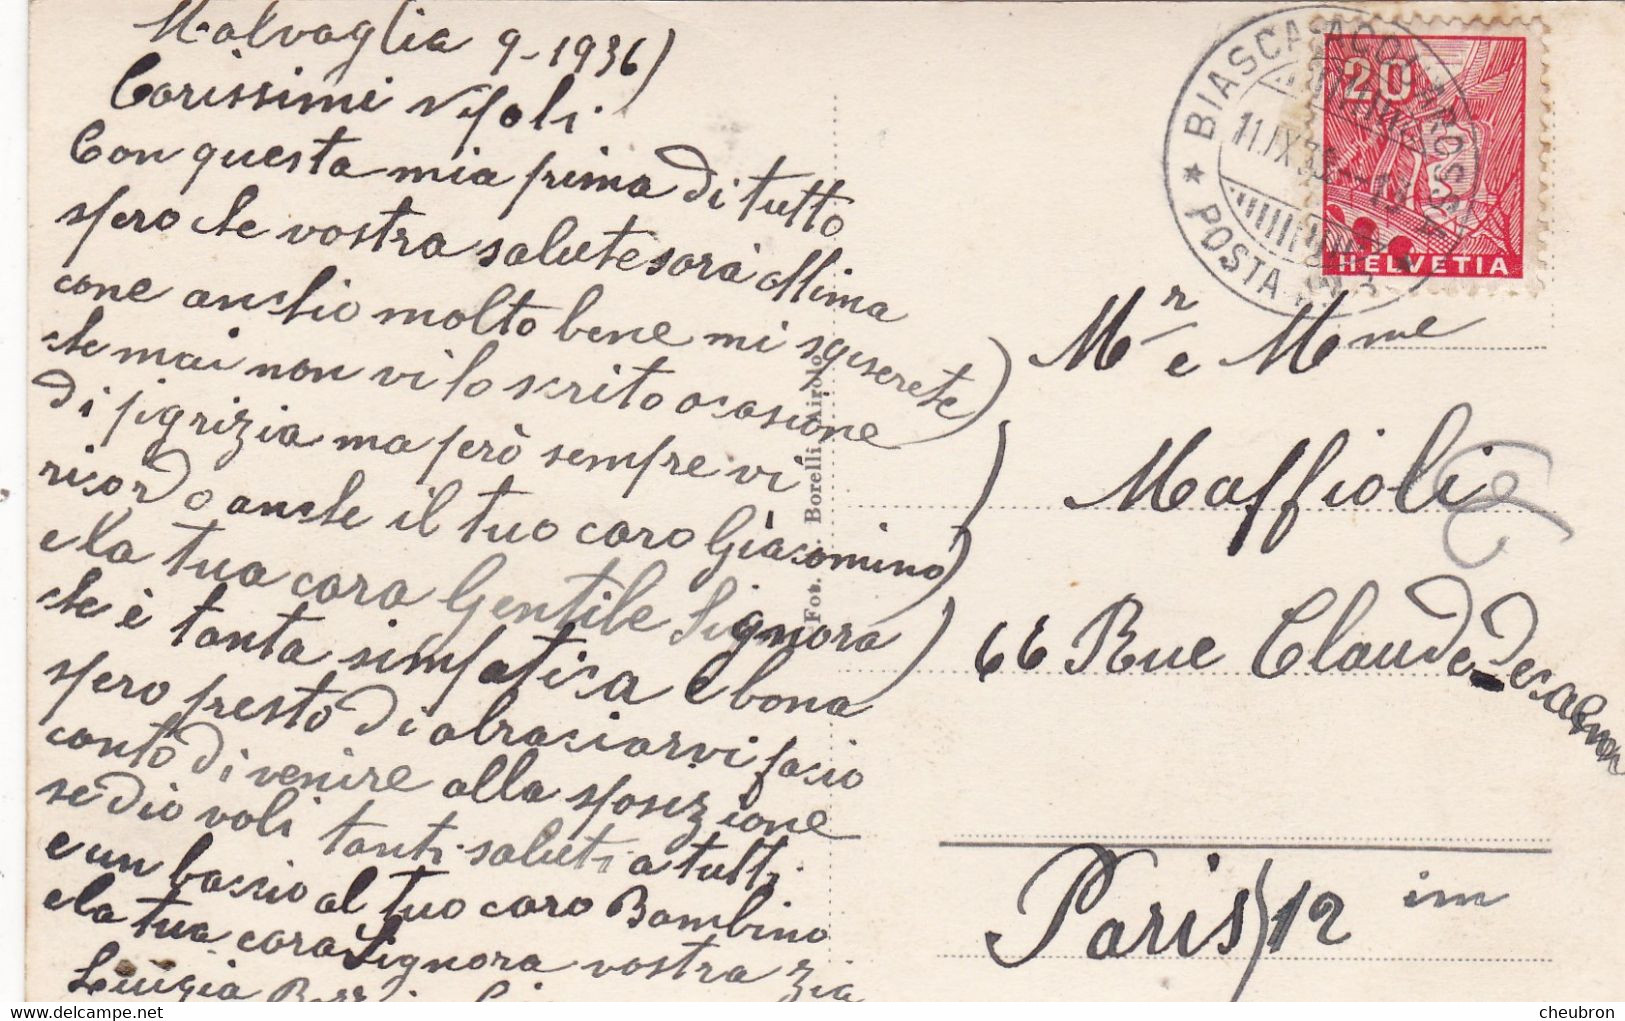 Malvaglia 9-1936)
Carissimi Nipoti
Con questa mia prima di tutto
spero che vostra salute sarà ottima
come anchio molto bene mi
che mai non vi lo scrito ocasione
di pigrizia ma però sempre vi
ricordo anche il tuo caro Giacomino)
e la tua cara Gentile Signora)
che è tanta simpatica e bona
spero presto di abraciarvi facio
conto di venire alla sposizione
se dio voli tanti saluti a tutti
e un baccio al tuo caro Bambino
e la tua cara Signora vostra zia
Luigia
Fot. Borelli, Airolo
BIASCA-ACQUAROSSA
11.IX.36
POSTA
20
HELVETIA
Mr e Mme
Maffioli
66 Rue Claude-Decaen
Paris)12 im
cheubron